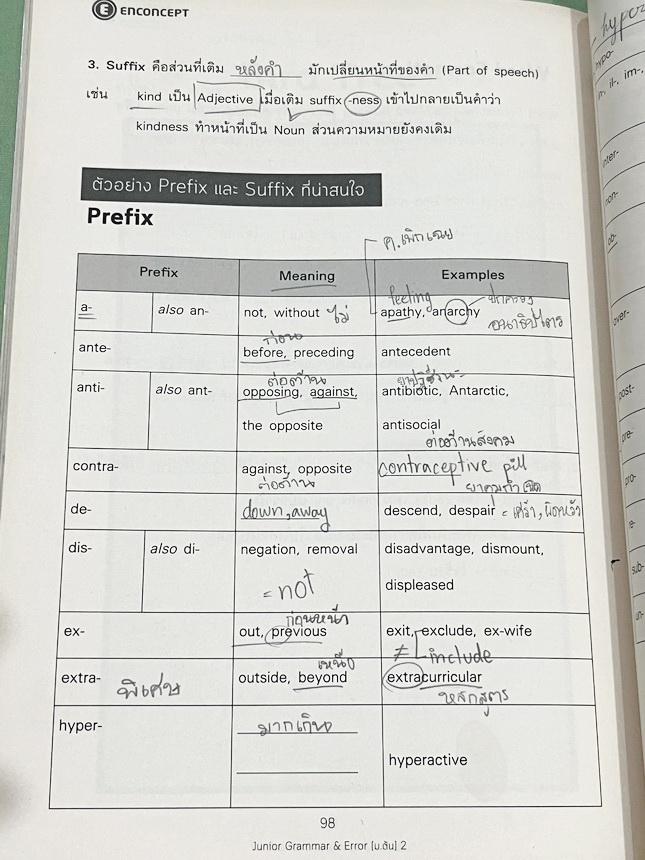 ENCONCEPT
3. Suffix คือส่วนที่เติม หลังคำ มักเปลี่ยนหน้าที่ของคำ (Part of speech)
เช่น kind เป็น Adjective เมื่อเติม suffix -ness เข้าไปกลายเป็นคำว่า
kindness ทำหน้าที่เป็น Noun ส่วนความหมายยังคงเดิม
ตัวอย่าง Prefix และ Suffix ที่น่าสนใจ
Prefix
ค.เพิกเฉย
Prefix Meaning Examples
feeling ปกครอง
a- also an- not, without ไม่ apathy, anarchy
อนาธิปไตย
ก่อน
ante- before, preceding antecedent
ต่อต้าน ยาปฏิชีวนะ
anti- also ant- opposing, against, antibiotic, Antarctic,
the opposite antisocial
ต่อต้านสังคม
contra- against, opposite contraceptive pill
ต่อต้าน ยาคุมกำเนิด
de- down, away descend, despair = เศร้า, ผิดหวัง
dis- also di- negation, removal disadvantage, dismount,
= not displeased
ก่อนหน้า
ex- out, previous exit, exclude, ex-wife
≠ include
เหนือ
extra- พิเศษ outside, beyond extracurricular
หลักสูตร
hyper- มากเกิน
hyperactive
98
Junior Grammar & Error (ม.ต้น) 2
hypo-
il-, im-,
inter-
non-
ob-
over-
post-
pre-
pro-
re-
sub-
un-